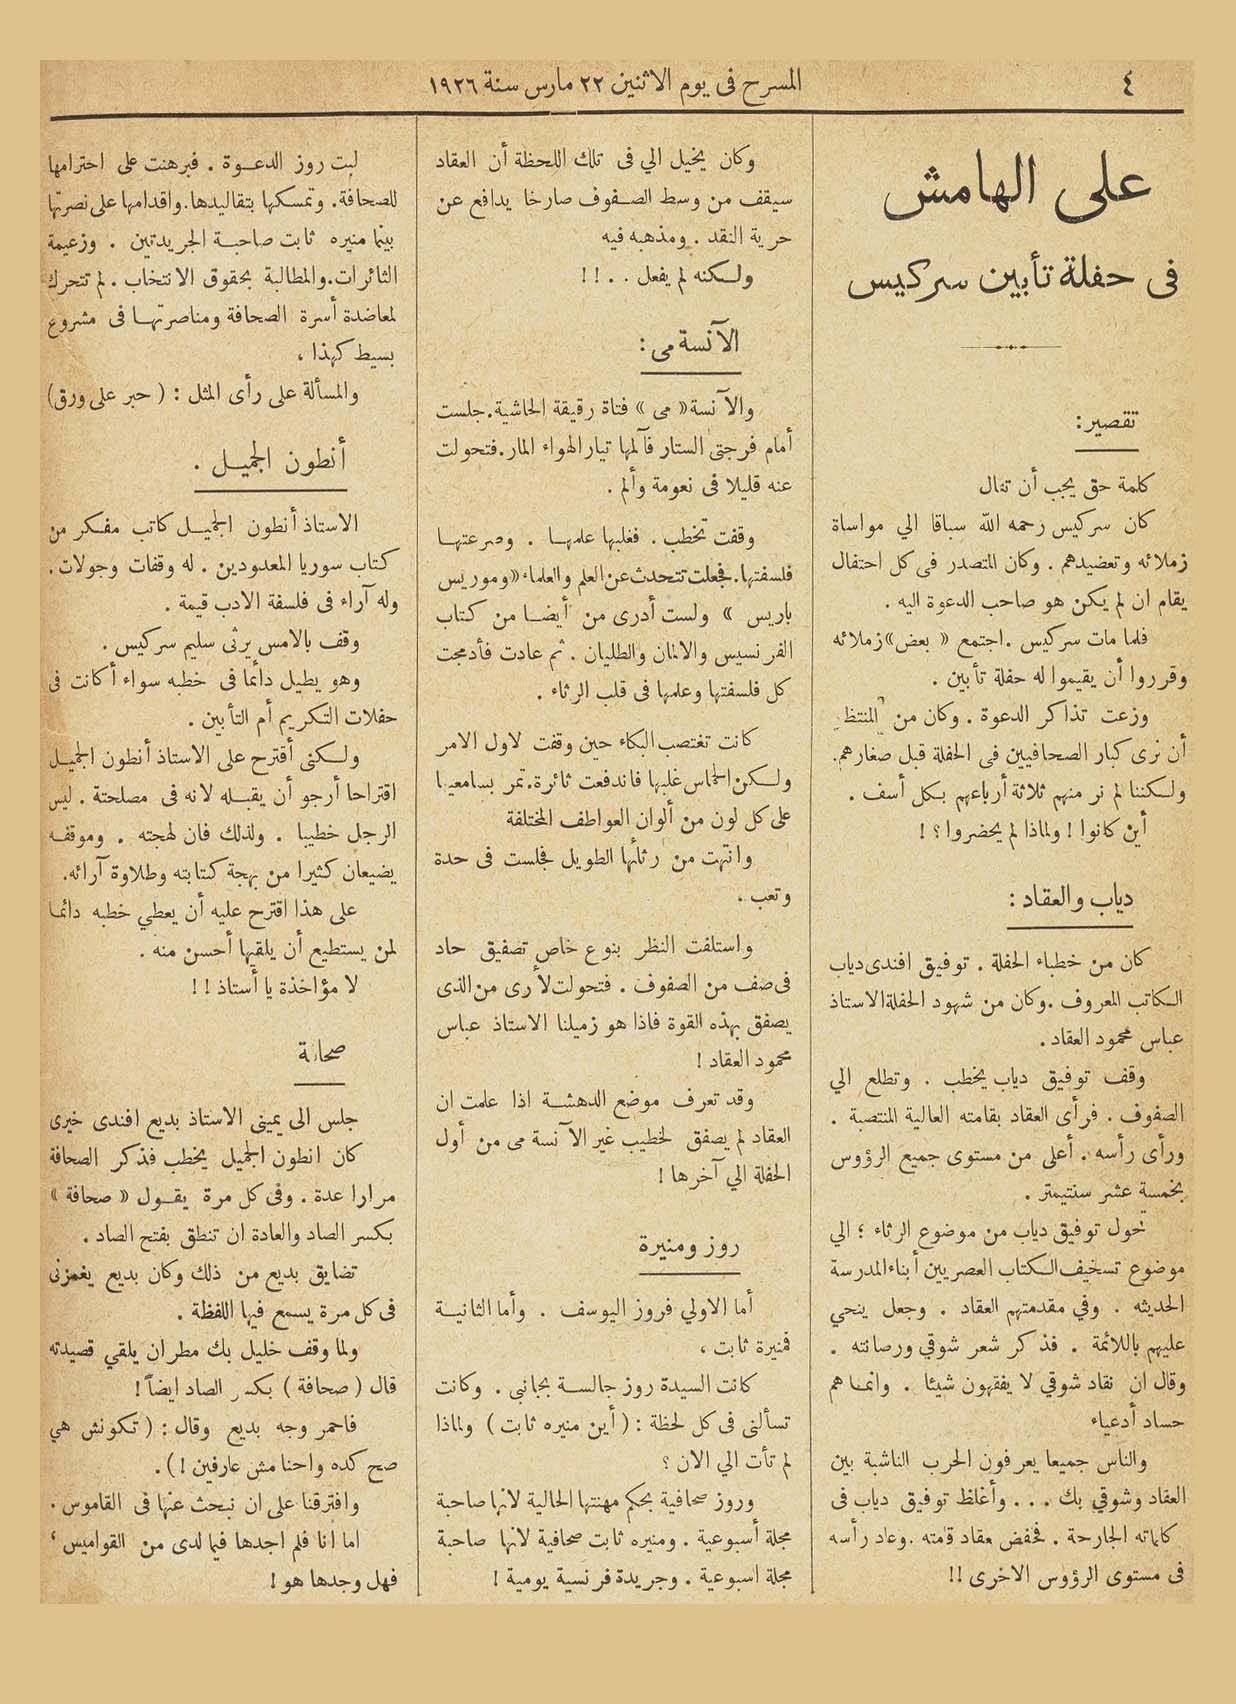 ٤
المسرح فى يوم الاثنين ٢٢ مارس سنة ١٩٢٦
على الهامش
فى حفلة تأبين سركيس
تقصير:
كلمة حق يجب أن تقال
كان سركيس رحمه الله سباقا الي مواساة
زملائه وتعضيدهم . وكان المتصدر فى كل احتفال
يقام ان لم يكن هو صاحب الدعوة اليه .
فلما مات سركيس . اجتمع « بعض » زملائه
وقرروا أن يقيموا له حفلة تأبين .
وزعت تذاكر الدعوة . وكان من المنتظر
أن نرى كبار الصحافيين فى الحفلة قبل صغارهم.
ولكننا لم نر منهم ثلاثة أرباعهم بكل أسف .
أين كانوا ! ولماذا لم يحضروا ؟ !
دياب والعقاد :
كان من خطباء الحفلة . توفيق افندى دياب
الكاتب المعروف . وكان من شهود الحفلة الاستاذ
عباس محمود العقاد .
وقف توفيق دياب يخطب . وتطلع الي
الصفوف . فرأى العقاد بقامته العالية المنتصبة .
ورأى رأسه . أعلى من مستوى جميع الرؤوس
بخمسة عشر سنتيمتر .
تحول توفيق دياب من موضوع الرثاء ؛ الي
موضوع تسخيف الكتاب العصريين أبناء المدرسة
الحديثه . وفي مقدمتهم العقاد . وجعل ينحي
عليهم باللائمة . فذكر شعر شوقي ورصانته .
وقال ان نقاد شوقي لا يفقهون شيئا . وانما هم
حساد أدعياء
والناس جميعا يعرفون الحرب الناشبة بين
العقاد وشوقي بك . . . وأغلظ توفيق دياب فى
كلماته الجارحة . فخفض عقاد قامته . وعاد رأسه
فى مستوى الرؤوس الاخرى !!
وكان يخيل الي فى تلك اللحظة أن العقاد
سيقف من وسط الصفوف صارخا يدافع عن
حرية النقد . ومذهبه فيه
ولكنه لم يفعل . . !!
الآنسة مى :
والآنسة « مى » فتاة رقيقة الحاشية . جلست
أمام فرجتى الستار فآلمها تيار الهواء المار . فتحولت
عنه قليلا فى نعومة وألم .
وقفت تخطب . فغلبها علمها . وصرعتها
فلسفتها . فجعلت تتحدث عن العلم والعلماء « وموريس
باريس » ولست أدرى من أيضا من كتاب
الفرنسيس والالمان والطليان . ثم عادت فأدمجت
كل فلسفتها وعلمها فى قلب الرثاء .
كانت تغتصب البكاء حين وقفت لاول الامر
ولكن الحماس غلبها فاندفعت ثائرة . تمر بسامعيها
على كل لون من ألوان العواطف المختلفة
وانتهت من رثائها الطويل فجلست فى حدة
وتعب .
واستلفت النظر بنوع خاص تصفيق حاد
فى صف من الصفوف . فتحولت لأرى من الذى
يصفق بهذه القوة فاذا هو زميلنا الاستاذ عباس
محمود العقاد !
وقد تعرف موضع الدهشة اذا علمت ان
العقاد لم يصفق لخطيب غير الآنسة مى من أول
الحفلة الي آخرها !
روز ومنيرة
أما الاولي فروز اليوسف . وأما الثانية
فمنيرة ثابت ،
كانت السيدة روز جالسة بجانبى . وكانت
تسألنى فى كل لحظة : ( أين منيره ثابت ) ولماذا
لم تأت الي الان ؟
وروز صحافية بحكم مهنتها الحالية لانها صاحبة
مجلة أسبوعية . ومنيره ثابت صحافية لانها صاحبة
مجلة اسبوعية . وجريدة فرنسية يومية !
لبت روز الدعوة . فبرهنت على احترامها
للصحافة . وتمسكها بتقاليدها . واقدامها على نصرتها
بينما منيره ثابت صاحبة الجريدتين . وزعيمة
الثائرات . والمطالبة بحقوق الانتخاب . لم تتحرك
لمعاضدة أسرة الصحافة ومناصرتها فى مشروع
بسيط كهذا ،
والمسألة على رأى المثل : ( حبر على ورق )
أنطون الجميل .
الاستاذ أنطون الجميل كاتب مفكر من
كتاب سوريا المعدودين . له وقفات وجولات .
وله آراء فى فلسفة الادب قيمة .
وقف بالامس يرثى سليم سركيس .
وهو يطيل دائما فى خطبه سواء أكانت فى
حفلات التكريم أم التأبين .
ولكنى أقترح على الاستاذ أنطون الجميل
اقتراحا أرجو أن يقبله لانه فى مصلحتة . ليس
الرجل خطيبا . ولذلك فان لهجته . وموقفه
يضيعان كثيرا من بهجة كتابته وطلاوة آرائه.
على هذا اقترح عليه أن يعطي خطبه دائما
لمن يستطيع أن يلقيها أحسن منه .
لا مؤاخذة يا أستاذ !!
صحافة
جلس الى يمينى الاستاذ بديع افندى خيرى
كان انطون الجميل يخطب فذكر الصحافة
مرارا عدة . وفى كل مرة يقول « صحافة »
بكسر الصاد والعادة ان تنطق بفتح الصاد .
تضايق بديع من ذلك وكان بديع يغمزنى
فى كل مرة يسمع فيها اللفظة .
ولما وقف خليل بك مطران يلقي قصيدته
قال ( صحافة ) بكسر الصاد ايضاً !
فاحمر وجه بديع وقال : ( تكونش هي
صح كده واحنا مش عارفين ! ) .
وافترقنا على ان نبحث عنها فى القاموس .
اما انا فلم اجدها فيما لدى من القواميس ،
فهل وجدها هو !